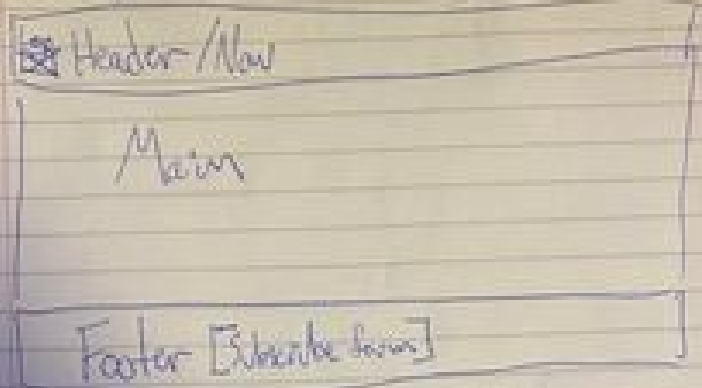 Header/Nav
Main
Footer [Subscribe form]